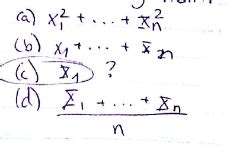 (a) X₁² + ... + X̄ₙ²
(b) X₁ + ... + X̄ n
(c) X̄₁ ?
(d) X̄₁ + ... + X̄ₙ
n